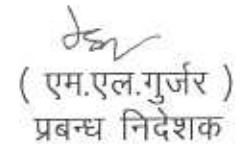 ( एम.एल.गुर्जर )
प्रबन्ध निदेशक